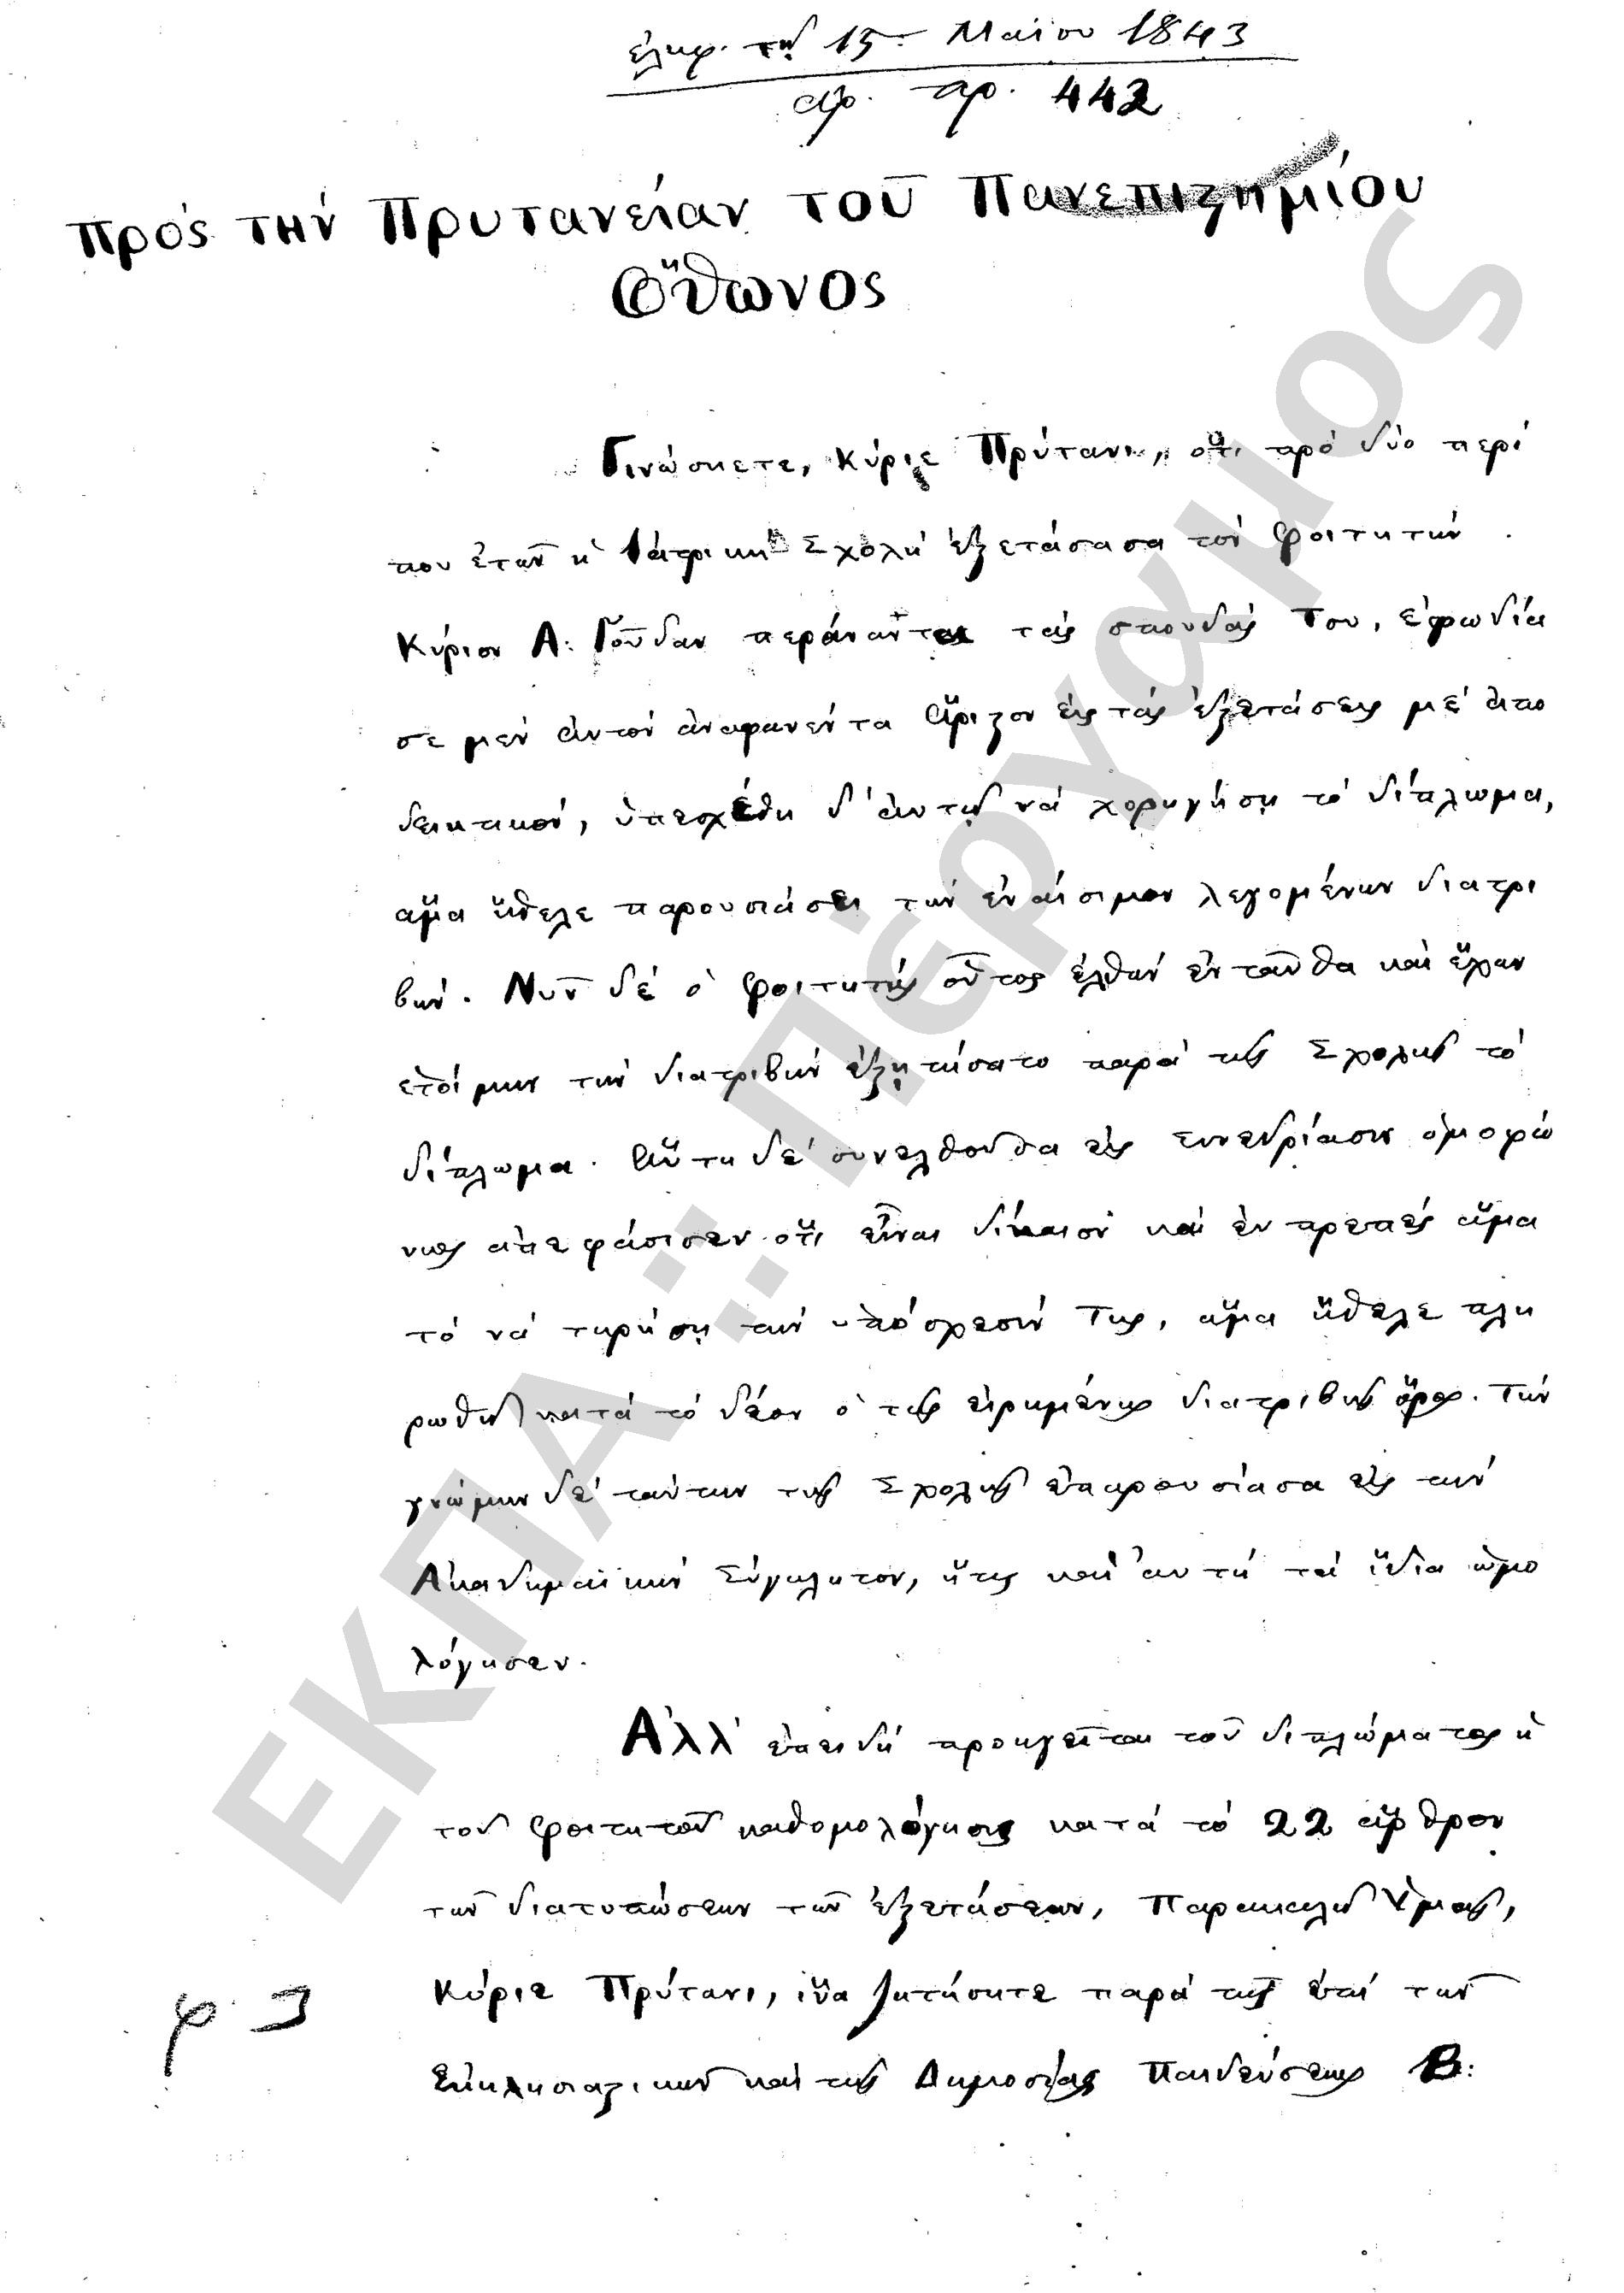 ἐλήφ. τῇ 15 Μαΐου 1843
ἀρ. πρ. 442
Πρός τήν Πρυτανείαν τοῦ Πανεπιστημίου
Ὄθωνος
Γινώσκετε, Κύριε Πρύτανι, ὅτι πρό δύο περί
που ἐτῶν ἡ Ἰατρική Σχολή ἐξετάσασα τόν φοιτητήν
Κύριον Α: Γούδαν περάναντα τάς σπουδάς του, ἐφωδία
σε μέν αὐτόν ἀναφανέντα ἄριστον εἰς τάς ἐξετάσεις μέ ἀπο
δεικτικόν, ὑπεσχέθη δ' αὐτῷ νά χορηγήσῃ τό δίπλωμα,
ἅμα ἤθελε παρουσιάσει τήν ἐναίσιμον λεγομένην διατρι
βήν. Νῦν δέ ὁ φοιτητής οὗτος ἐλθών ἐνταῦθα καί ἔχων
ἑτοίμην τήν διατριβήν ἐζητήσατο παρά τῆς Σχολῆς τό
δίπλωμα. Αὕτη δέ συνελθοῦσα εἰς συνεδρίασιν ὁμοφώ
νως ἀπεφάσισεν ὅτι εἶναι δίκαιον καί εὐπρεπές ἅμα
τό νά τηρήσῃ τήν ὑπόσχεσίν της, ἅμα ἤθελε πλη
ρωθῇ κατά τό δέον ὁ τῆς εἰρημένης διατριβῆς ὅρος. Τήν
γνώμην δέ ταύτην τῆς Σχολῆς ἐπαρουσίασα εἰς τήν
Ἀκαδημαϊκήν Σύγκλητον, ἥτις καί αὐτή τά ἴδια ὡμο
λόγησεν.
Ἀλλ' ἐπειδή προηγεῖται τοῦ διπλώματος ἡ
τοῦ φοιτητοῦ καθομολόγησις κατά τό 22 ἄρθρον
τῶν διατυπώσεων τῶν ἐξετάσεων, Παρακαλῶ Ὑμᾶς,
Κύριε Πρύτανι, ἵνα ζητήσητε παρά τῆς ἐπί τῶν
Ἐκκλησιαστικῶν καί τῆς Δημοσίας Παιδεύσεως Β:
φ 3
ΕΚΠΑ :: Πέργαμος